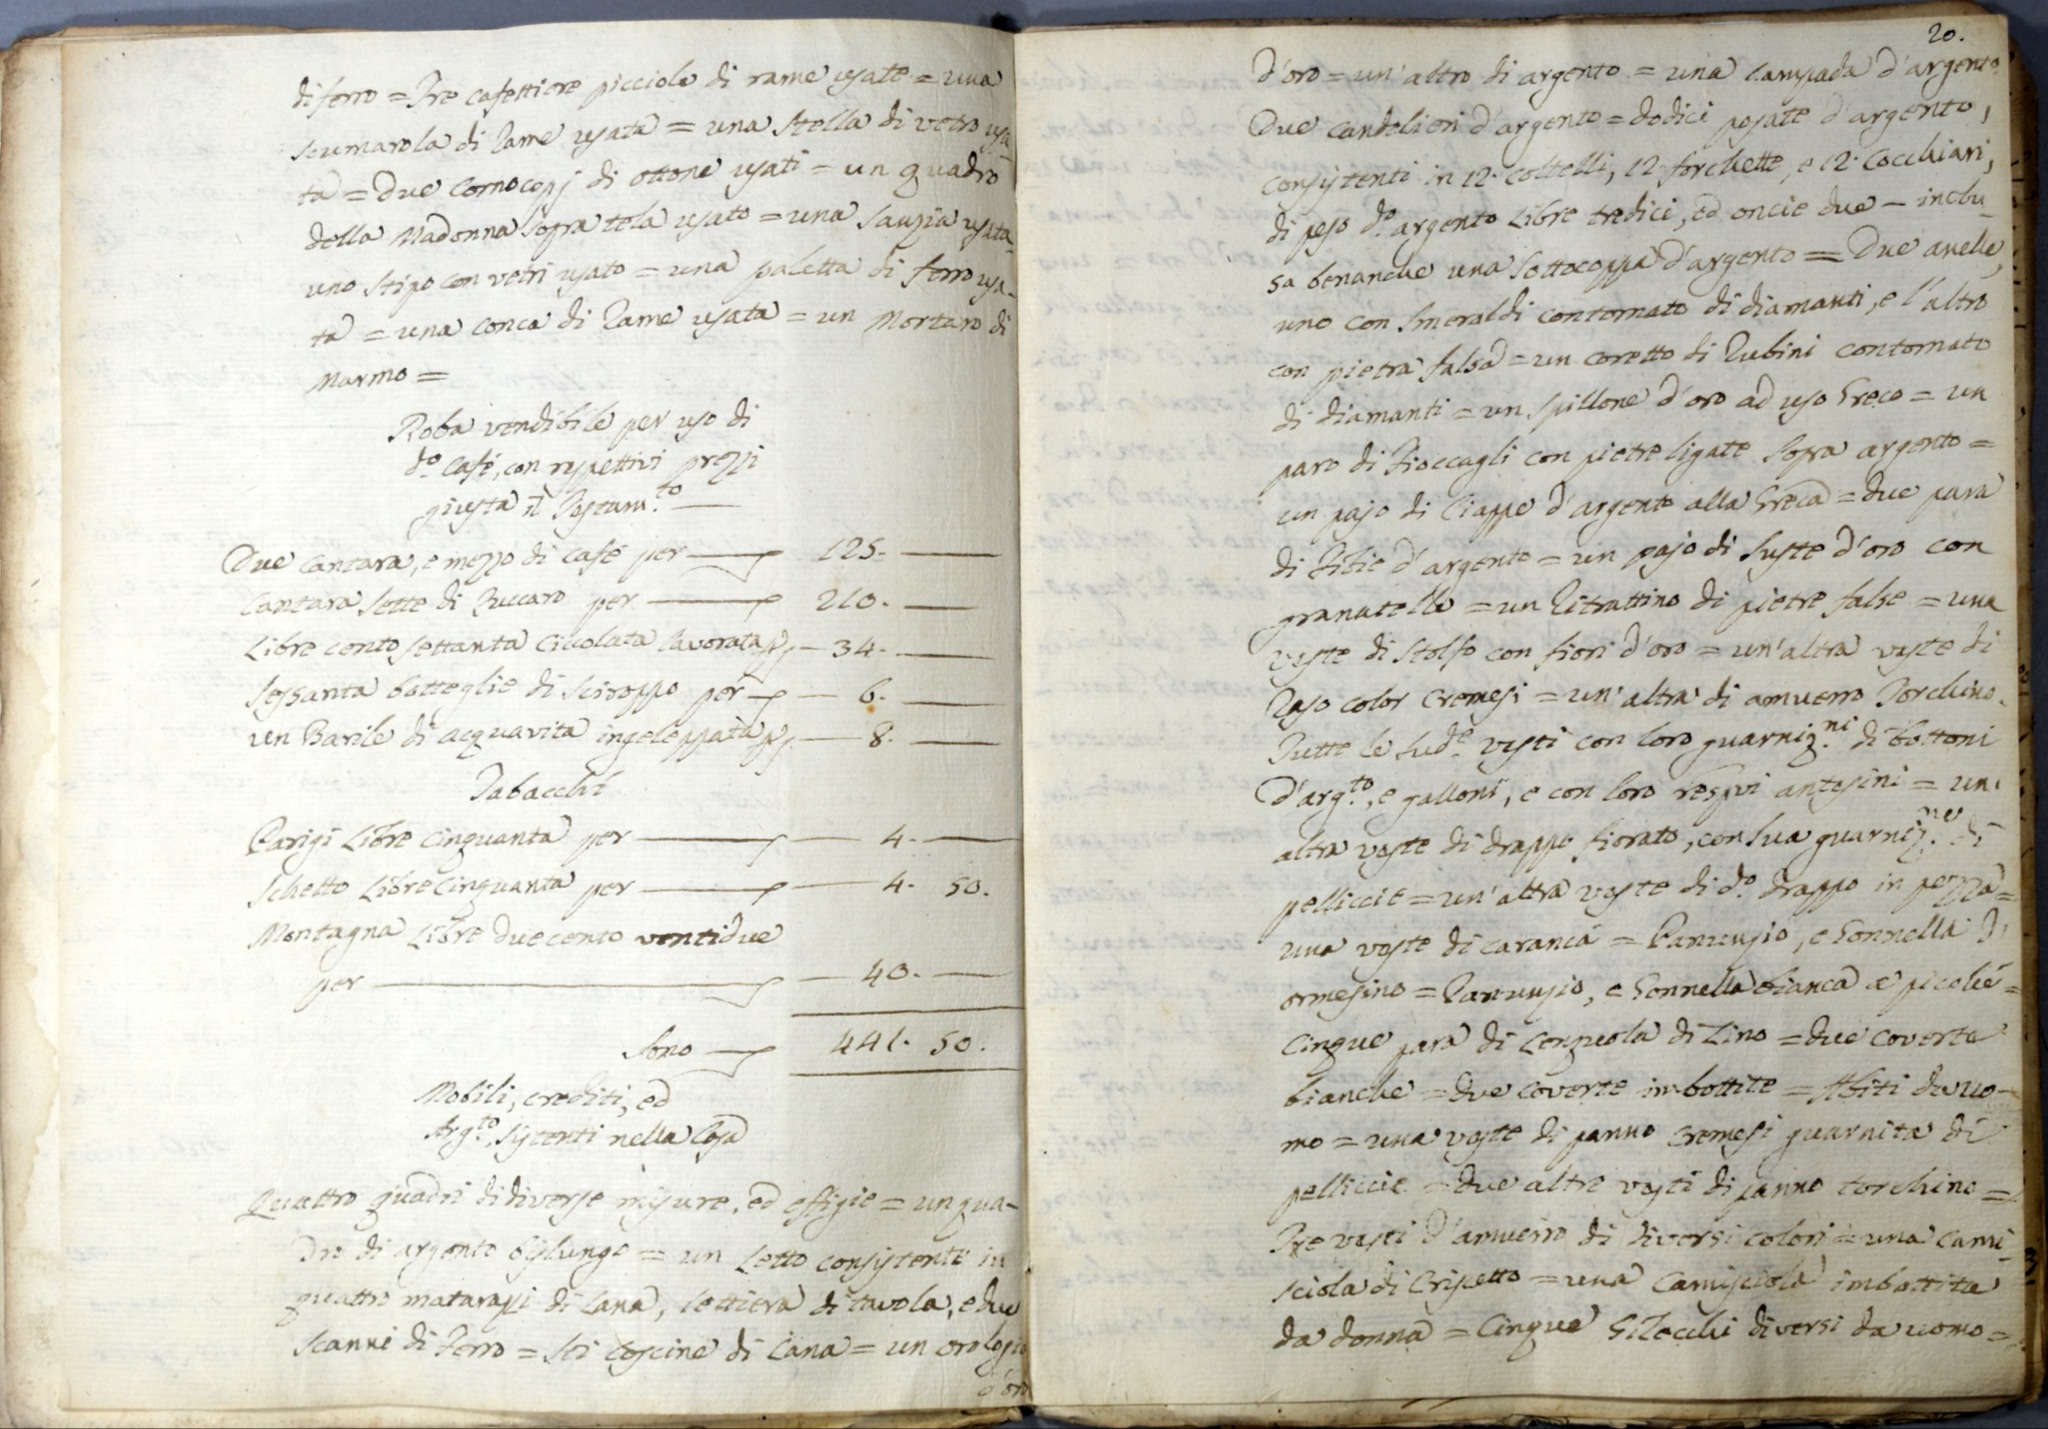 di ferro = Tre cafettiere picciole di rame usate = una
scumarola di Rame usata = una stella di vetro usa
ta = due cornocopj di ottone usati = un quadro
della Madonna sopra tela usato = una usata
uno stipo con vetri usato = una paletta di ferro usa-
ta = una conca di Rame usata = un Mortaro di
Marmo =
Roba vendibile per uso di
do. Café, con rispettivi prezzi
giusta il Testam.to —
Due Cantara, e mezzo di café per — 125. —
Cantara sette di Zuccaro per — 210. —
Libre cento settanta Ciccolata lavorata p — 34. —
Sessanta botteglie di sciroppo per — 6. —
un Barile di acquavita ingeleppata p — 8. —
Tabacchi
Parigi Libre Cinquanta per — 4. —
Schetto Libre Cinquanta per — 4. 50.
Montagna Libre duecento ventidue
per — 40. —
Sono — 441. 50.
Mobili, crediti, ed
Arg.to, sistenti nella Casa
Quattro quadri di diverse misure, ed effigie = un qua-
dro di argento bislungo = un Letto consistente in
quattro matarazzi di Lana, lettiera di tavola, e due
scanni di Ferro = sei coscine di Lana = un orologio
d'oro
20.
d'oro = un'altro di argento = una lampada d'argento
Due candelieri d'argento = dodici posate d'argento,
consistenti in 12. coltelli, 12. forchette, e 12. Cocchiari,
di peso do. argento Libre tredici, ed oncie due — inclu-
sa benanche una sottocoppa d'argento = Due anelle,
uno con smeraldi contornato di diamanti, e l'altro
con pietra falsa = un coretto di Rubini contornato
di diamanti = un spillone d'oro ad uso Greco = un
paro di Fioccagli con pietre ligate sopra argento =
un pajo di Ciappe d'argento alla Greca = due para
di Fibie d'argento = un pajo di suste d'oro con
granatelle = un Ritrattino di pietre false = una
veste di stolfo con fiori d'oro = un'altra veste di
Raso color Cremesi = un'altra di amuerro Torchino.
Tutte le sude. vesti con loro guarniz.ni di bottoni
d'arg.to, e galloni, e con loro respvi antesini = un'
altra veste di drappo fiorato, con sua guarniz.ne di
pelliccie = un'altra veste di do. drappo in pezza =
una veste di carancá = , e Gonnella d'
ormesino = , e Gonnella bianca =
Cinque para di Lenzuola di Lino = due coverte
bianche = due coverte imbottite = Abiti da uo-
mo = una veste di panno Cremesi guarnita di
pelliccie = due altre vesti di panno torchino =
Tre vesti d'amuerro di diversi colori = una Cami-
sciola di Crisetto = una Camisciola imbottita
da donna = Cinque Gilecchi diversi da uomo =